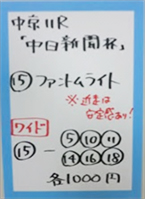 中京11R
「中日新聞杯」
⑮ ファントムライト
※近走は
安定感あり!
ワイド
⑮ー⑤⑩⑪
⑭⑯⑱
各1000円